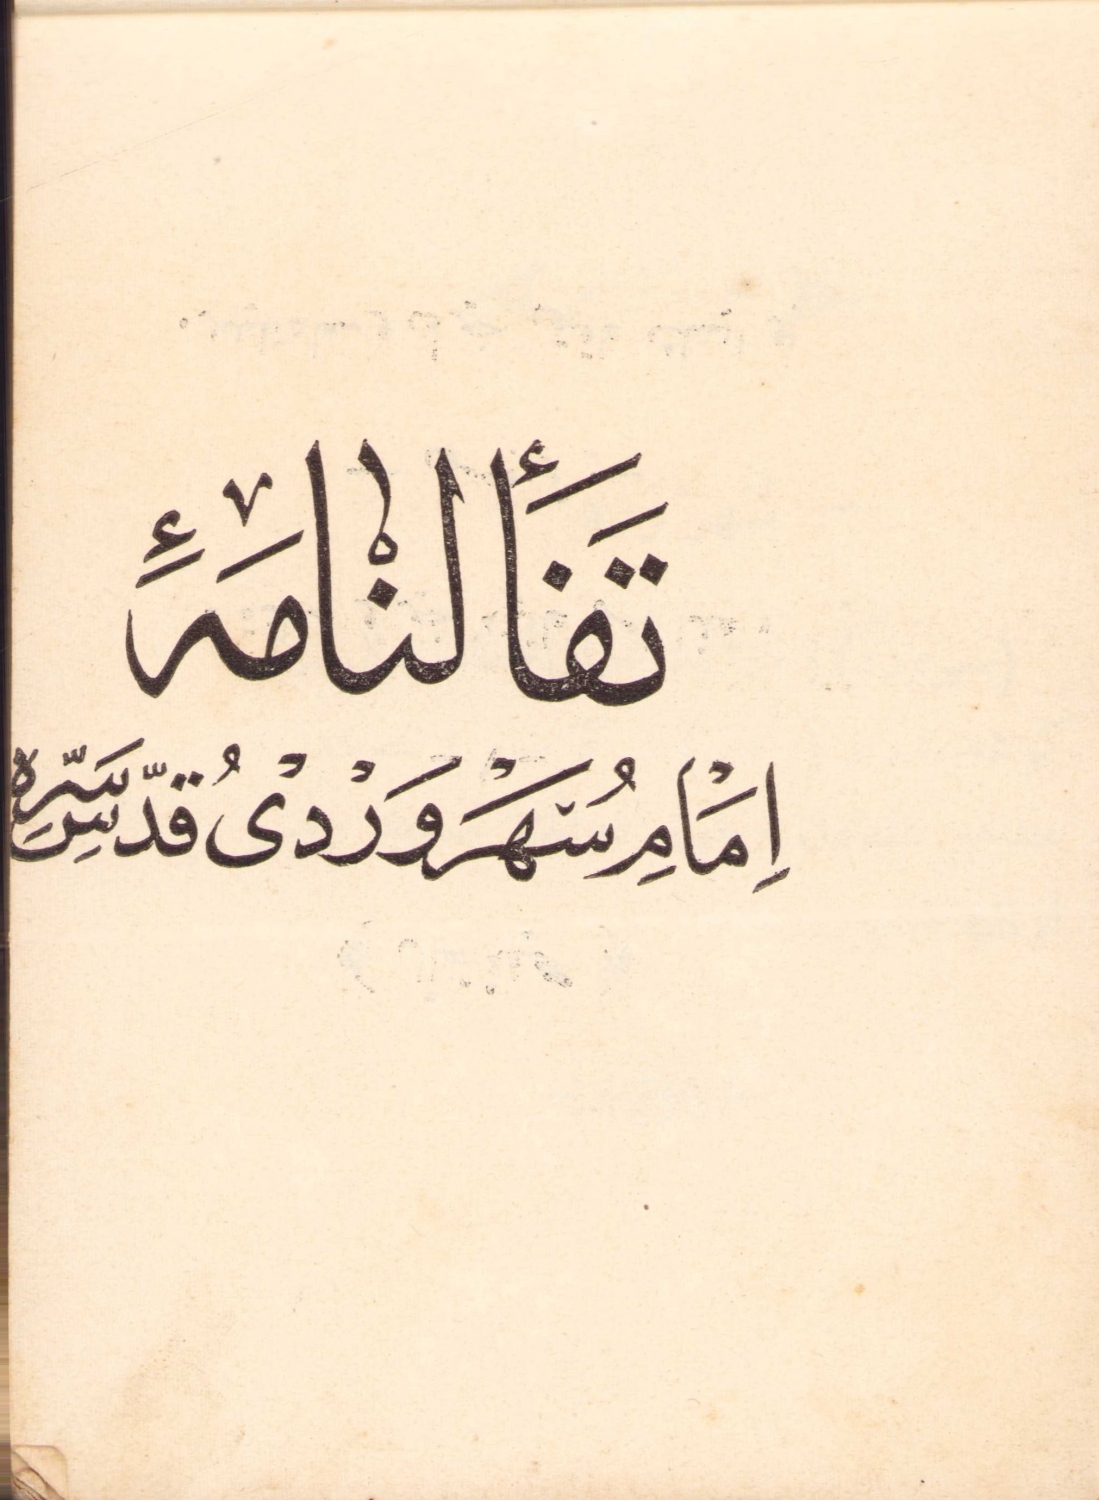 تَفَأَّلْنَامَهٔ
اِمَامِ سُهْرَوَرْدْى قُدِّسَ سِرُّهُ